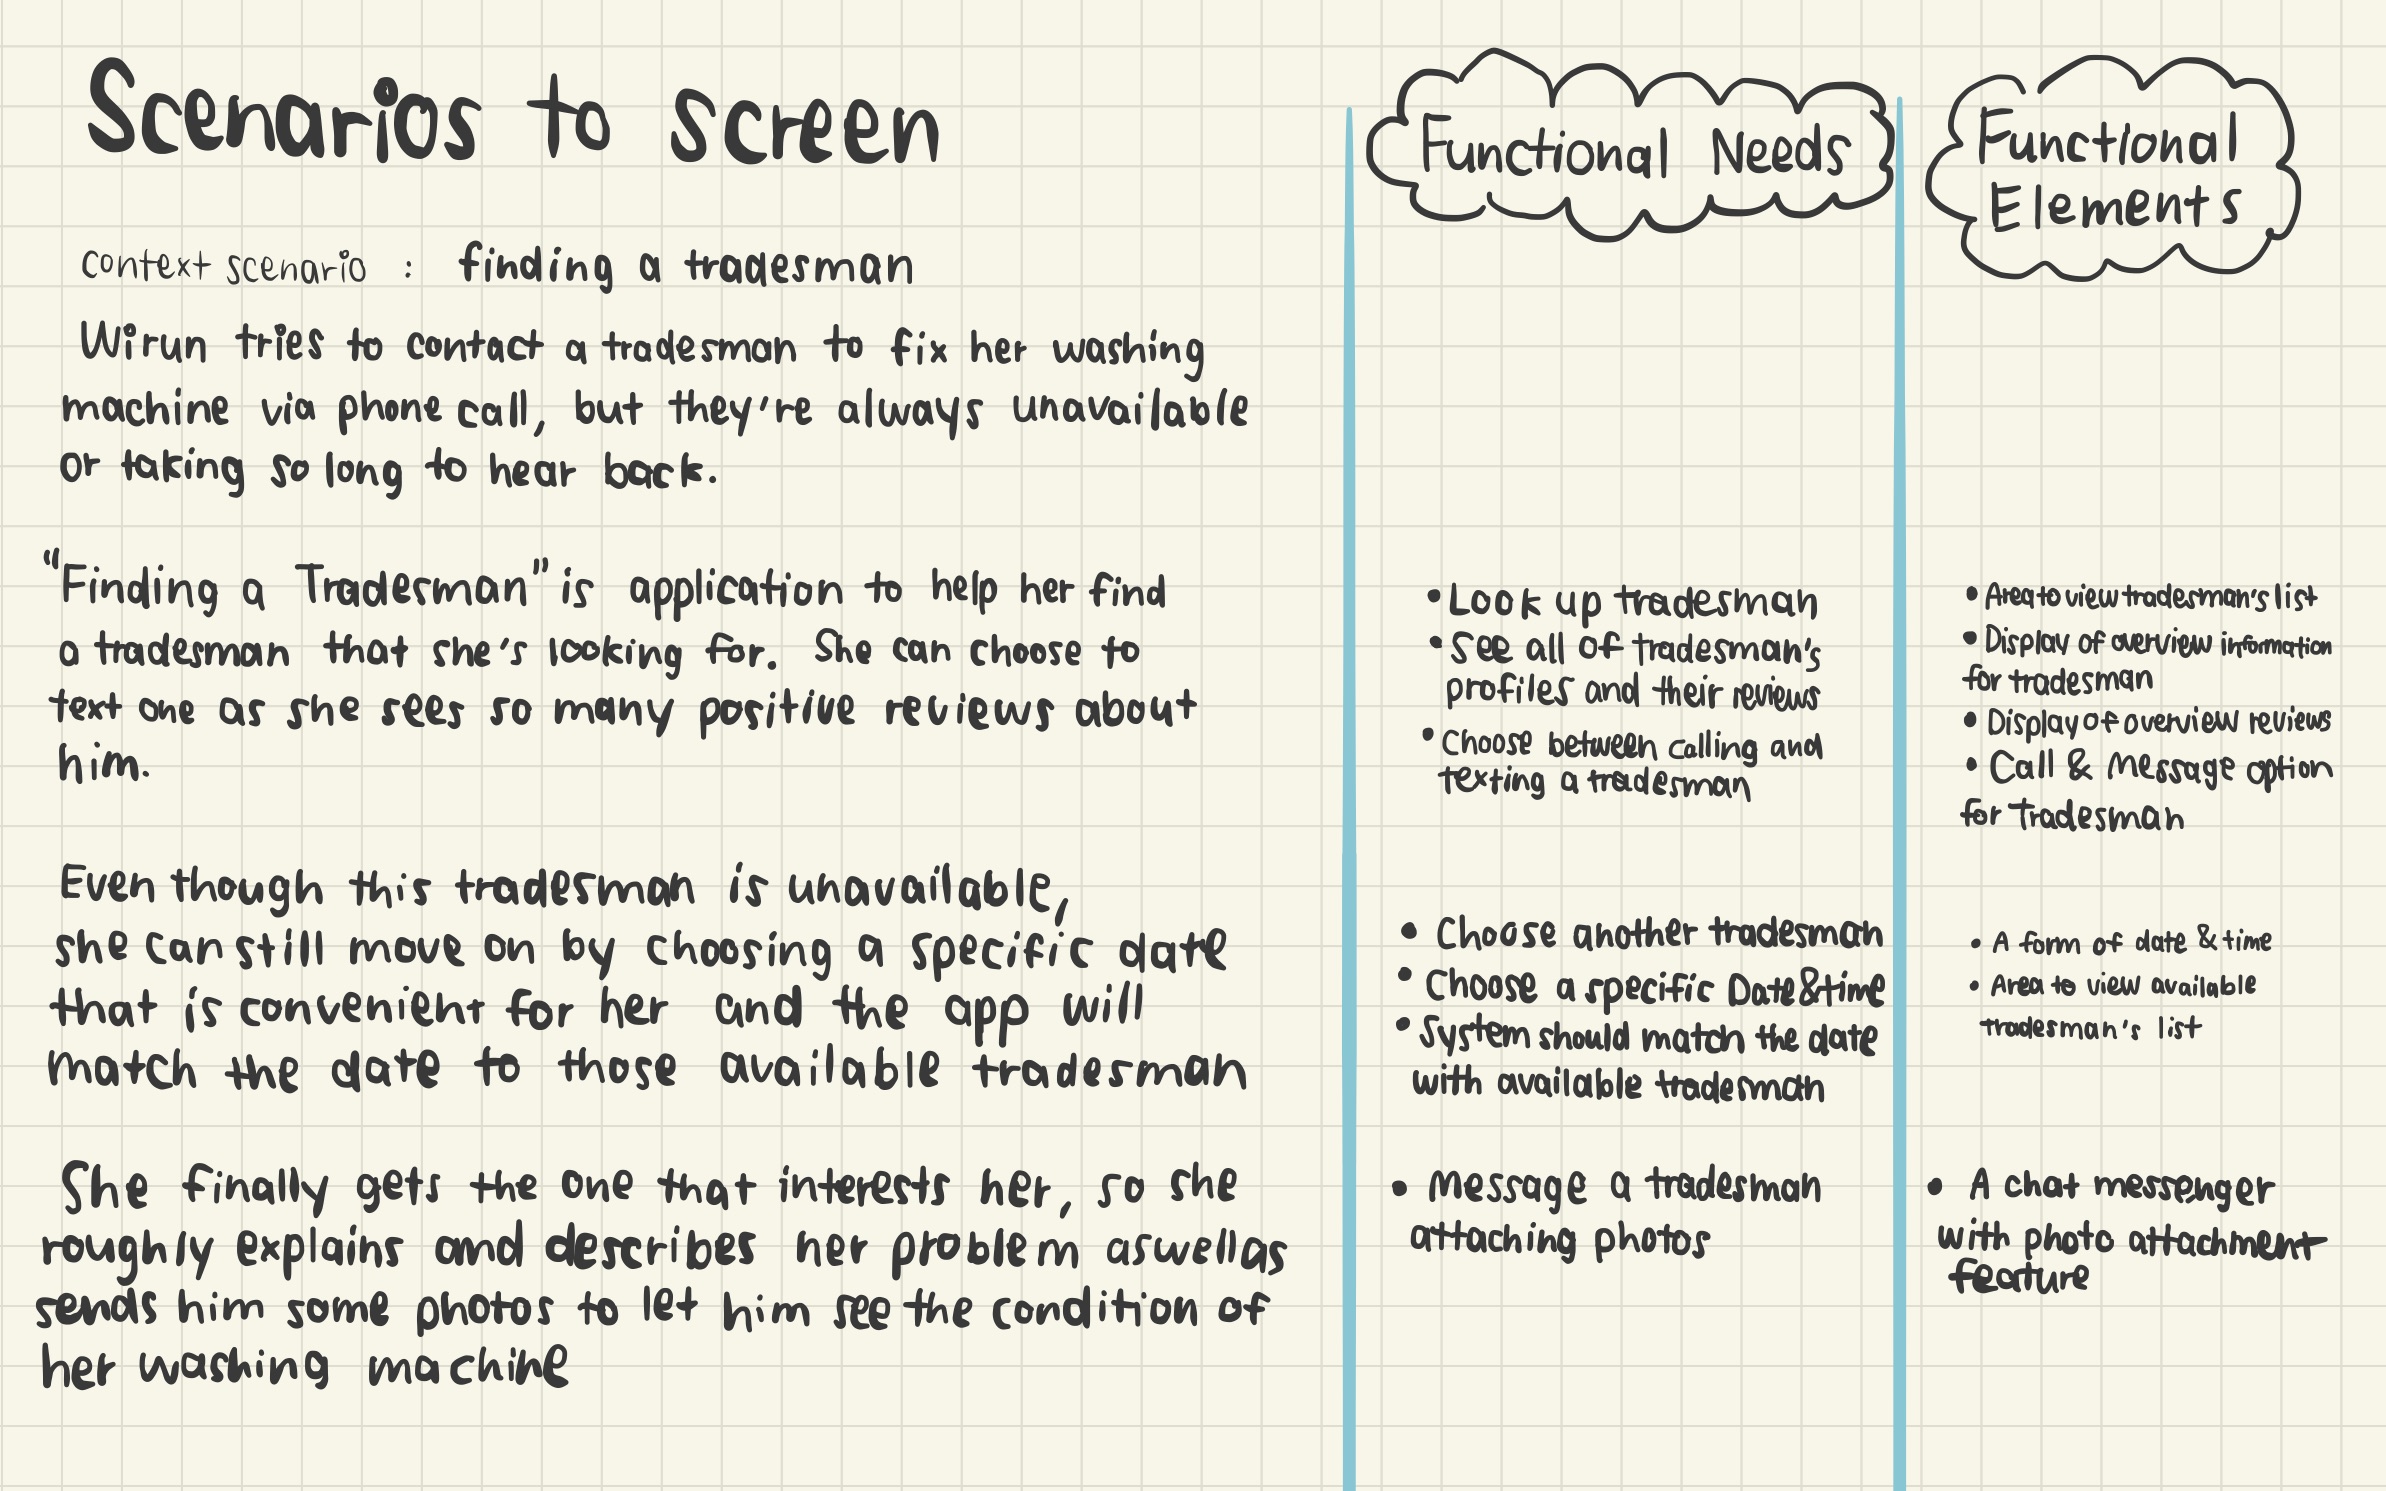 Scenarios to screen
context scenario : finding a tradesman
Wirun tries to contact a tradesman to fix her washing
machine via phone call, but they're always unavailable
or taking so long to hear back.
"Finding a Tradesman" is application to help her find
a tradesman that she's looking for. She can choose to
text one as she sees so many positive reviews about
him.
Even though this tradesman is unavailable,
she can still move on by choosing a specific date
that is convenient for her and the app will
match the date to those available tradesman
She finally gets the one that interests her, so she
roughly explains and describes her problem aswellas
sends him some photos to let him see the condition of
her washing machine
Functional Needs
• Look up tradesman
• See all of tradesman's
profiles and their reviews
• Choose between calling and
texting a tradesman
• Choose another tradesman
• Choose a specific Date&time
• System should match the date
with available tradesman
• Message a tradesman
attaching photos
Functional
Elements
• Area to view tradesman's list
• Display of overview information
for tradesman
• Display of overview reviews
• Call & Message option
for Tradesman
• A form of date & time
• Area to view available
tradesman's list
• A chat messenger
with photo attachment
feature